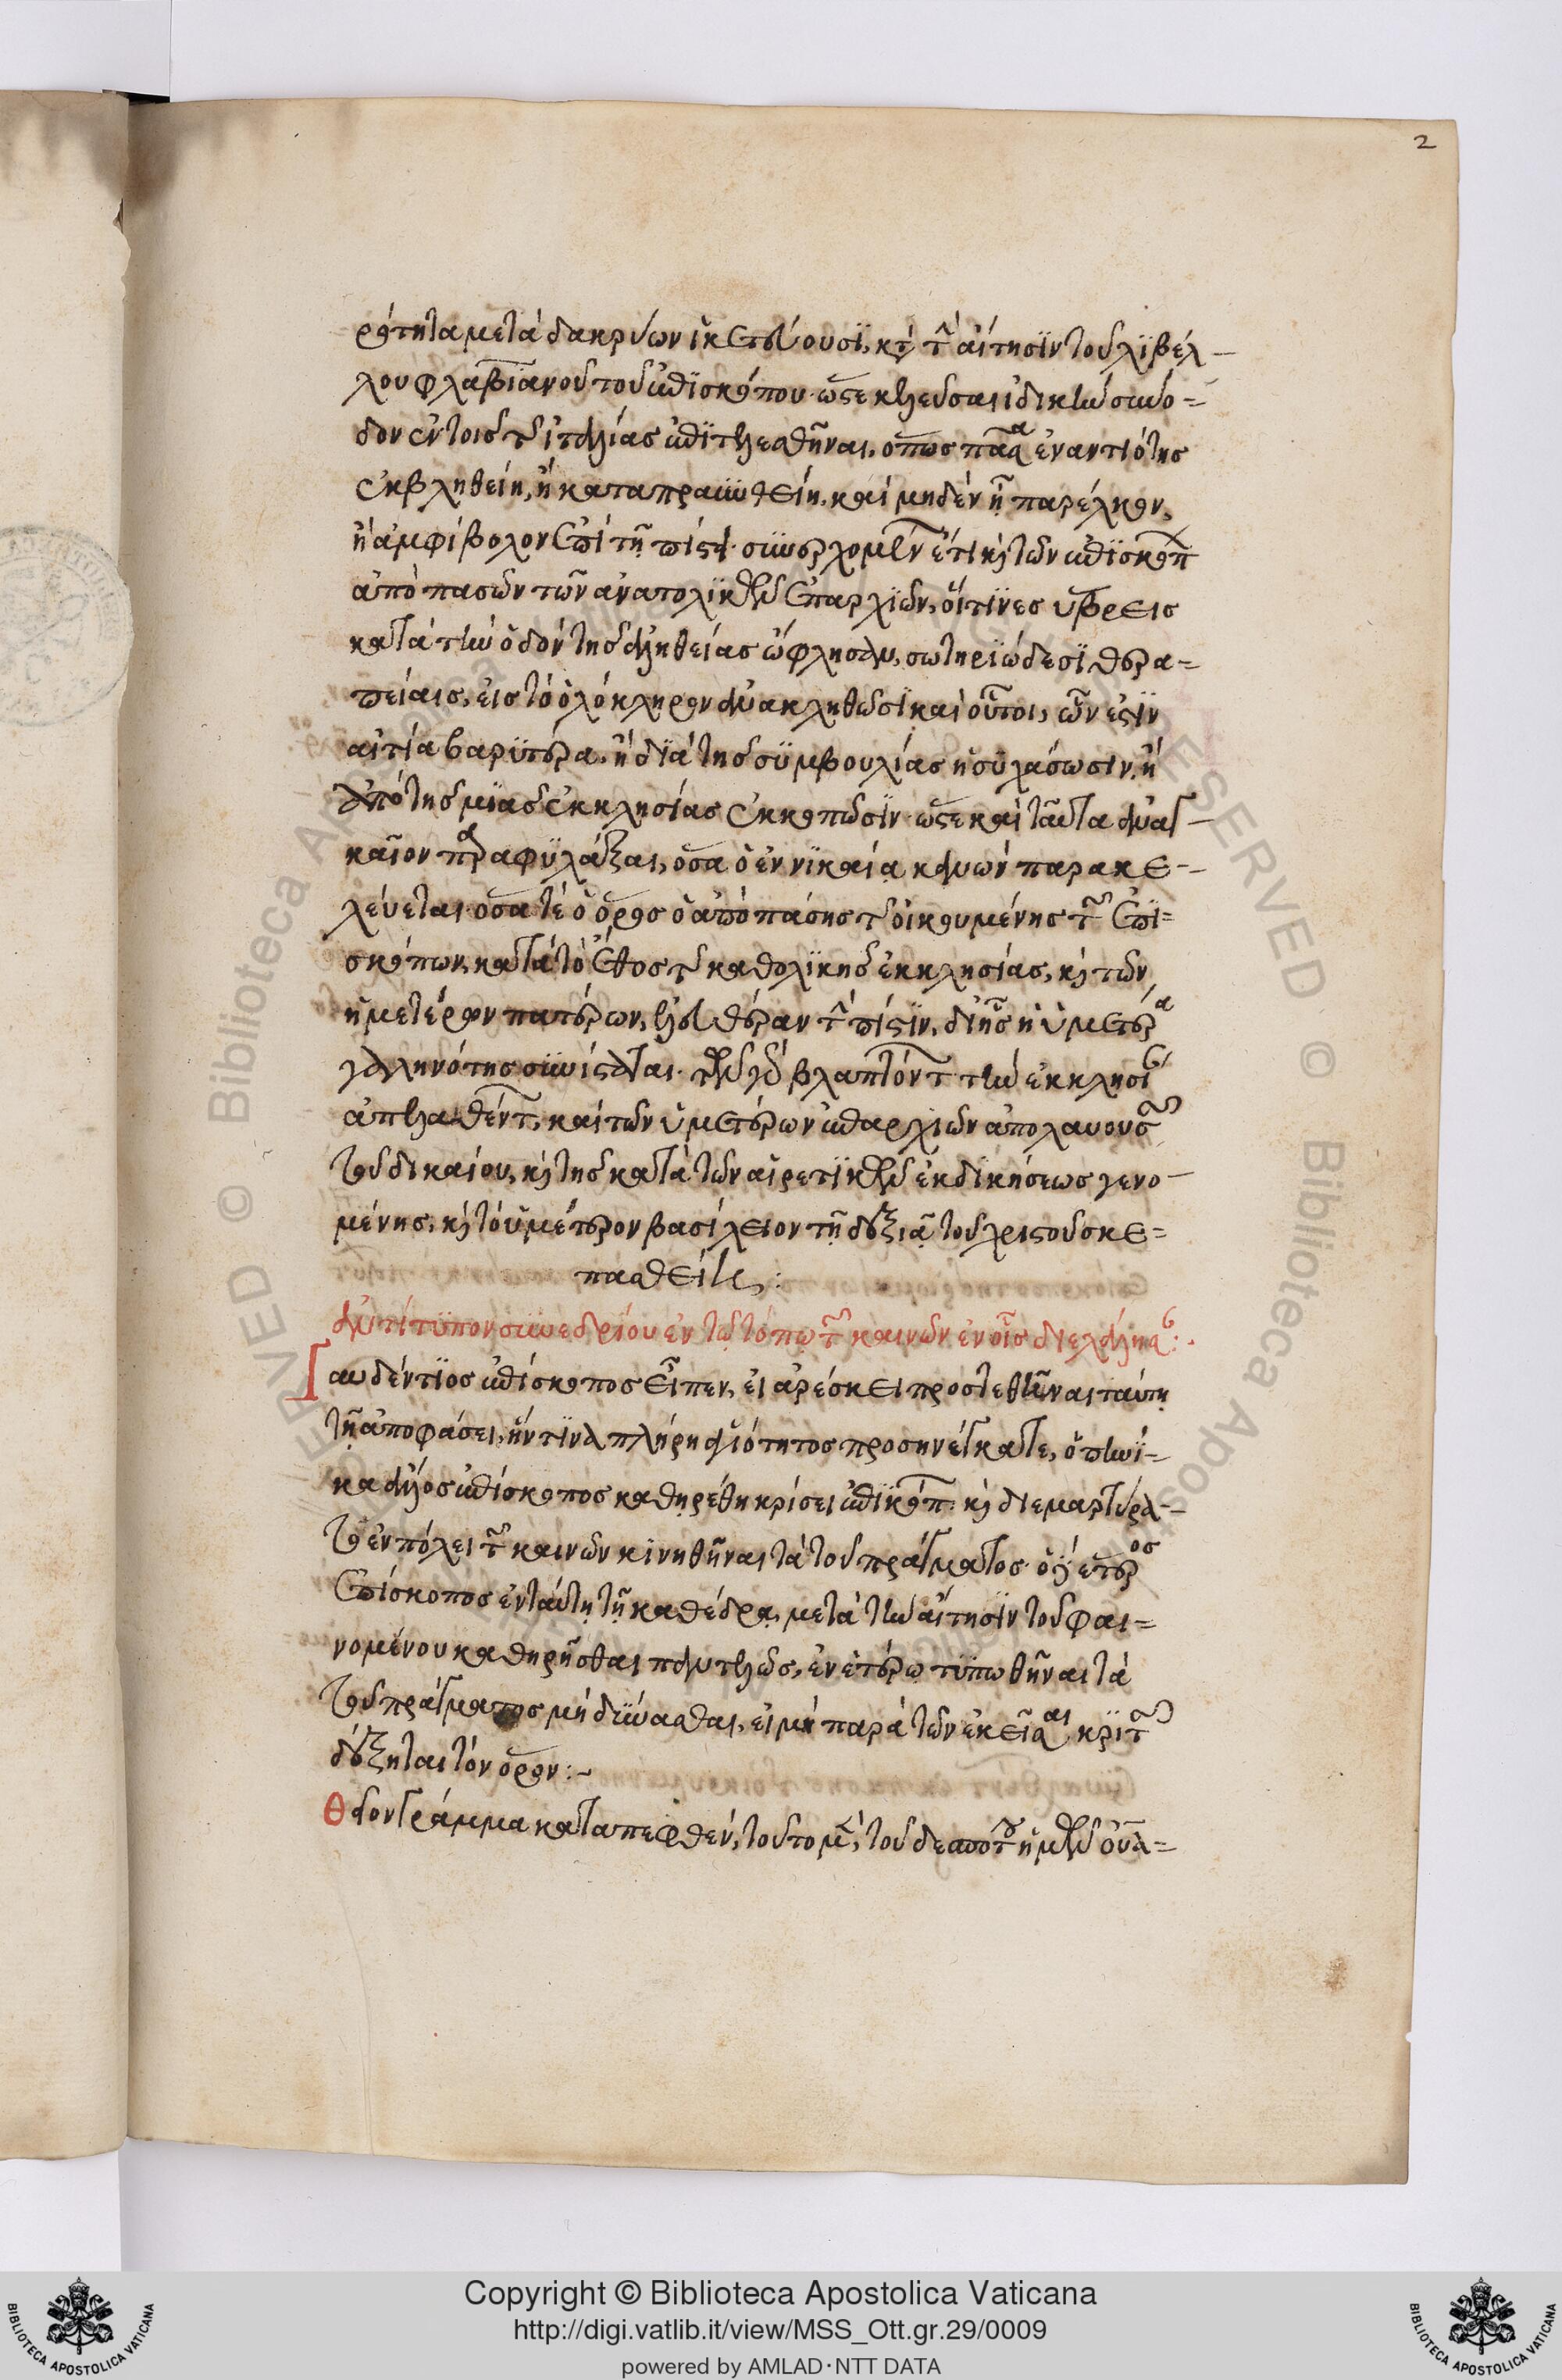 2
ρότητα μετὰ δακρύων ἱκετεύουσϊ, κατὰ τὴν αἴτησϊν τοῦ λϊβέλ-
λου φλαβϊανοῦ τοῦ ἐπϊσκόπου· ὥστε κελεῦσαι ἰδικὴν σύνο-
δον ἐν τοῖς τῆς ἰταλίας ἐπϊτελεσθῆναι, ὅπως πᾶσα ἐναντιότης
ἐκβληθείη, ἢ καταπραϋνθείη, καὶ μηδὲν ἦ παρέλκον,
ἢ ἀμφίβολον ἐπὶ τῆ πίστει· συνερχομένων ἔτι καὶ τῶν ἐπϊσκόπων
ἀπὸ πασῶν τῶν ἀνατολϊκῶν ἐπαρχϊῶν, οἵτϊνες ὕβρεις
κατὰ τὴν ὁδὸν τῆς ἀληθείας ὤφλησαν, σωτηρϊώδεσϊ θερα=
πείαις, εἰς τὸ ὁλόκληρον ἀνακληθῶσϊ καὶ οὗτοι, ὧν ἐστϊν
αἰτία βαρϋτέρα, ἢ δϊὰ τῆς σϋμβουλίας ἡσϋχάσωσιν, ἢ
ἀπὸ τῆς μϊᾶς ἐκκλησίας ἐκκοπῶσϊν· ὥστε καὶ ταῦτα ἀναγ-
καῖον παραφϋλάξαι, ὅσα ὁ ἐν νϊκαία κανὼν παρακε-
λεύεται· ὅσα τὲ ὁ ὅρος ὁ ἀπὸ πάσης τῆς οἰκουμένης τῶν ἐπϊ=
σκόπων, κατὰ τὸ ἔθος τῆς καθολϊκῆς ἐκκλησίας, καὶ τῶν
ἡμετέρων πατέρων, ἐλευθέραν τὴν πίστϊν, δι᾽ ἧς ἡ ὑμετέρα
γαληνότης συνίσταται· τῶν γὰρ βλαπτόντων τὴν ἐκκλησίαν
ἀπελασθέντων, καὶ τῶν ὑμετέρων ἐπαρχιῶν ἀπολαυουσῶν
τοῦ δικαίου, καὶ τῆς κατὰ τῶν αἱρετϊκῶν ἐκδϊκήσεως γενο-
μένης, καὶ τὸ ὑμέτερον βασίλειον τῆ δεξιᾶ τοῦ χριστοῦ σκε=
πασθείη:
ἀντίτϋπον συνεδρίου ἐν τῶ τόπω τῶν καινῶν ἐν οἷς διελάλησαν:
Γαυδέντϊος ἐπίσκοπος εἶπεν, εἰ ἀρέσκει προστεθῆναι ταύτη
τῆ ἀποφάσει, ἥντϊνα πλήρη ἁγιότητος προσηνέγκατε, ὅτ᾽ ἡνί-
κα ἄλλος ἐπίσκοπος καθηρέθη κρίσει ἐπϊσκόπων· καὶ διεμαρτύρα-
το ἐν πόλει τῶν καινῶν κϊνηθῆναι τὰ τοῦ πράγματος· ὁ γὰρ ἕτερος
ἐπίσκοπος ἐν ταύτη τῆ καθέδρα, μετὰ τὴν αἴτησϊν τοῦ φαι=
νομένου καθηρῆσθαι παντελῶς, ἐν ἑτέρω τϋπωθῆναι τὰ
τοῦ πράγματος μὴ δύνασθαι, εἰ μὴ παρὰ τῶν ἐκεῖσαι κρϊτῶν
δέξηται τὸν ὅρον:~
Θεῖον γράμμα καταπεμφθέν, τοῦτο μὲν, τοῦ δεσπότου ἡμῶν οὐα=
Copyright © Biblioteca Apostolica Vaticana
http://digi.vatlib.it/view/MSS_Ott.gr.29/0009
powered by AMLAD·NTT DATA